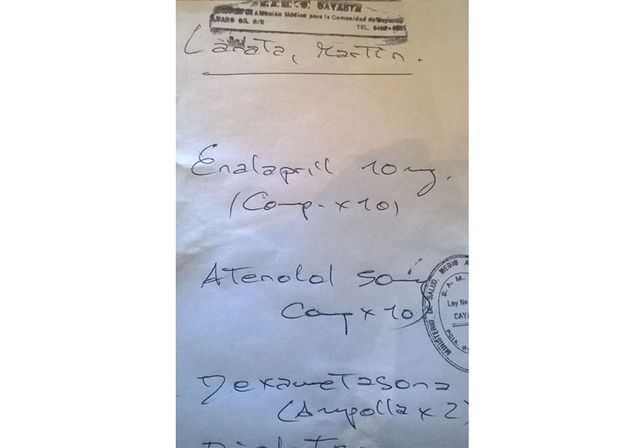 S.A.M.CO. CAYASTA
Atención Médica para la Comunidad de Cayastá
ALVARO GIL S/N TEL.
Lanata, Martín.
Enalapril 10 mg.
(Comp. x 10)
Atenolol 50 mg
Comp x 10)
Dexametasona
(Ampolla x 2)
MINISTERIO DE SALUD, MEDIO A
S.A.M.
Ley No
CAYA